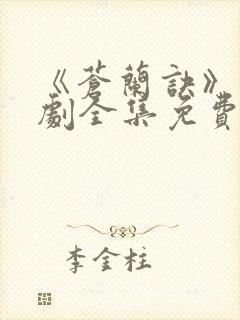 《蒼蘭訣》
劇全集免費
李金柱